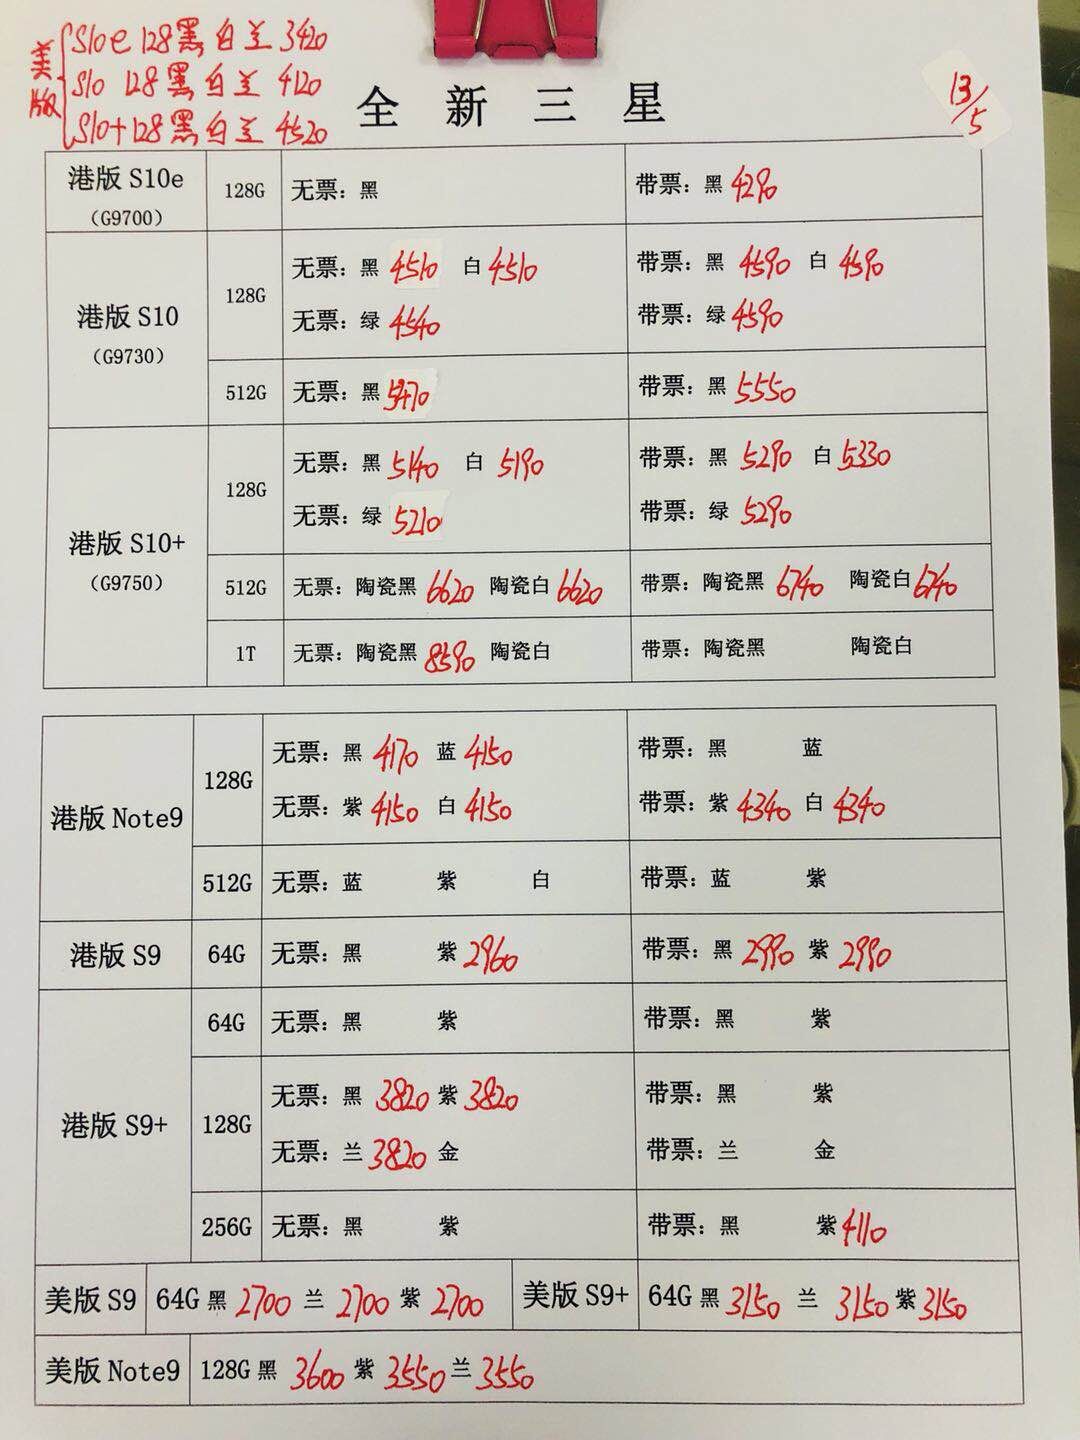 美版 S10e 128黑白兰 3420
S10 128黑白兰 4120
S10+128黑白兰 4520
全新三星
13/5
港版 S10e
(G9700)
128G 无票：黑 带票：黑 4290
港版 S10
(G9730)
128G 无票：黑 4510 白 4510 带票：黑 4590 白 4590
无票：绿 4540 带票：绿 4590
512G 无票：黑 5470 带票：黑 5550
港版 S10+
(G9750)
128G 无票：黑 5140 白 5190 带票：黑 5290 白 5330
无票：绿 5210 带票：绿 5290
512G 无票：陶瓷黑 6620 陶瓷白 6620 带票：陶瓷黑 6740 陶瓷白 6740
1T 无票：陶瓷黑 8590 陶瓷白 带票：陶瓷黑 陶瓷白
港版 Note9
128G 无票：黑 4170 蓝 4150 带票：黑 蓝
无票：紫 4150 白 4150 带票：紫 4340 白 4340
512G 无票：蓝 紫 白 带票：蓝 紫
港版 S9 64G 无票：黑 紫 2960 带票：黑 2990 紫 2990
港版 S9+
64G 无票：黑 紫 带票：黑 紫
128G 无票：黑 3820 紫 3820 带票：黑 紫
无票：兰 3820 金 带票：兰 金
256G 无票：黑 紫 带票：黑 紫 4110
美版 S9 64G 黑 2700 兰 2700 紫 2700 美版 S9+ 64G 黑 3150 兰 3150 紫 3150
美版 Note9 128G 黑 3600 紫 3550 兰 3550